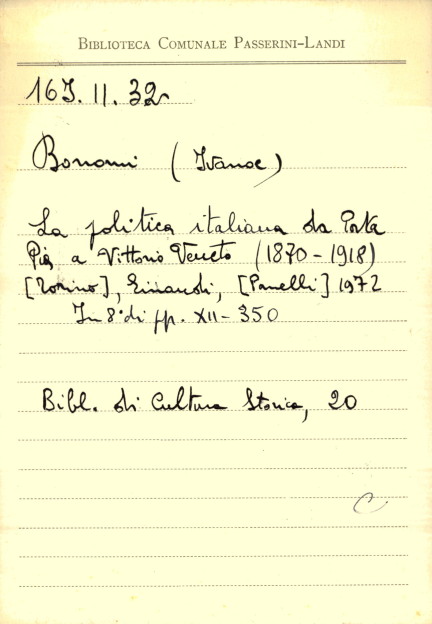 BIBLIOTECA COMUNALE PASSERINI-LANDI
16J. II. 32
Bonomi (Ivanoe)
La politica italiana da Porta
Pia a Vittorio Veneto (1870-1918)
[Torino], Einaudi, [Panelli] 1972
In 8° di pp. XII-350
Bibl. di Cultura Storica, 20
C